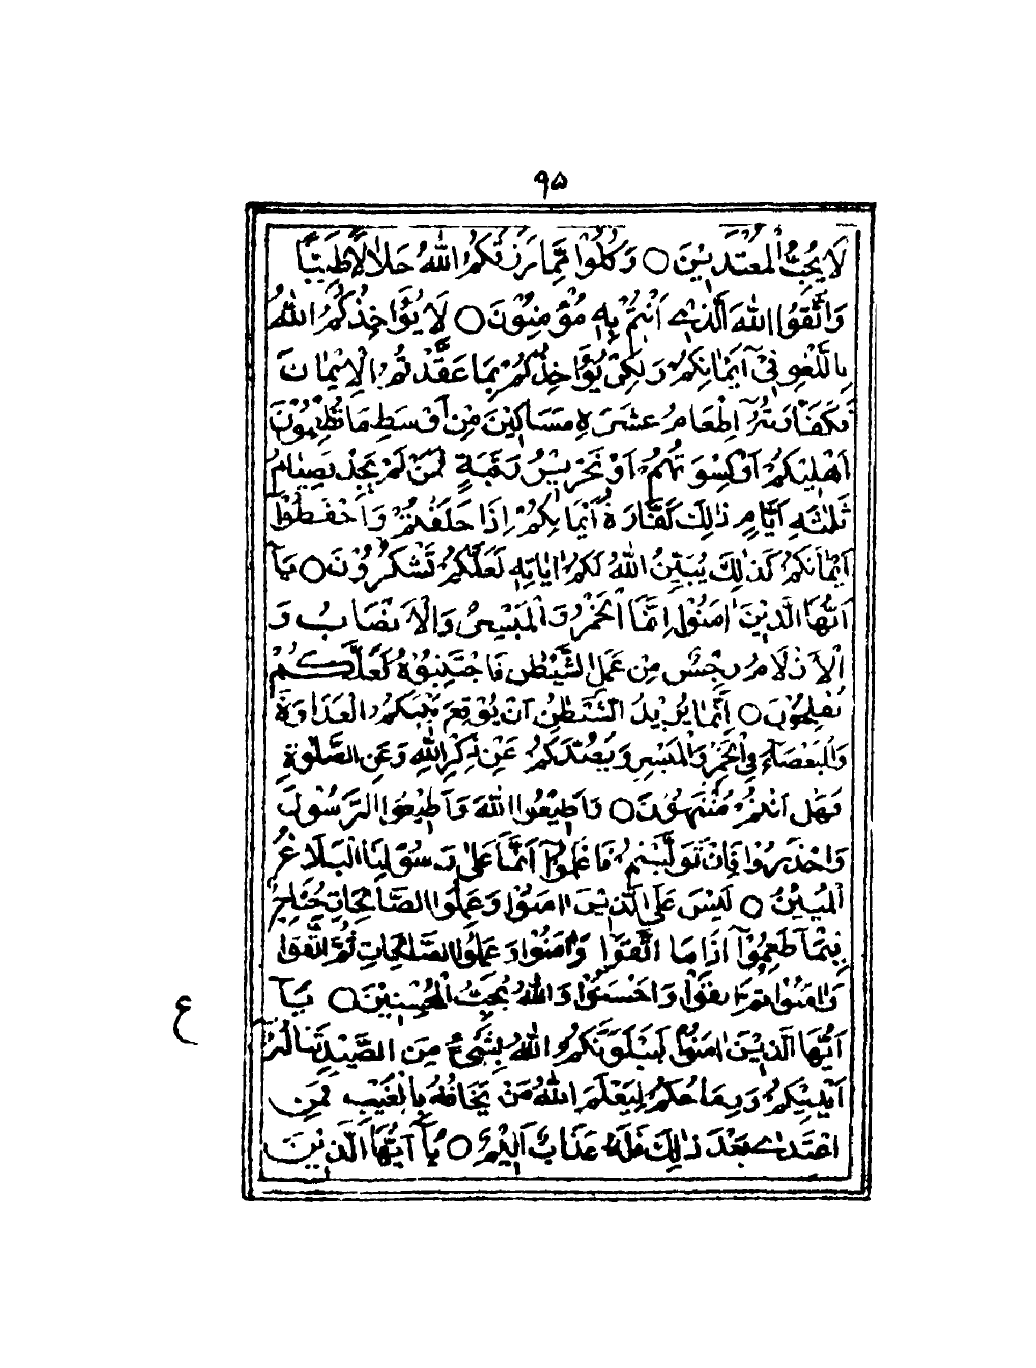 ۹۵
لَا يُحِبُّ الْمُعْتَدِيْنَ ○ وَكُلُوْا مِمَّا رَزَقَكُمُ اللّٰهُ حَلَالًا طَيِّبًا
وَاتَّقُوا اللّٰهَ الَّذِيْ اَنْتُمْ بِهٖ مُؤْمِنُوْنَ ○ لَا يُؤَاخِذُكُمُ اللّٰهُ
بِاللَّغْوِ فِيْ اَيْمَانِكُمْ وَلٰكِنْ يُؤَاخِذُكُمْ بِمَا عَقَّدْتُمُ الْاَيْمَانَ
فَكَفَّارَتُهٗ اِطْعَامُ عَشَرَةِ مَسَاكِيْنَ مِنْ اَوْسَطِ مَا تُطْعِمُوْنَ
اَهْلِيْكُمْ اَوْ كِسْوَتُهُمْ اَوْ تَحْرِيْرُ رَقَبَةٍ فَمَنْ لَمْ يَجِدْ فَصِيَامُ
ثَلٰثَةِ اَيَّامٍ ذٰلِكَ كَفَّارَةُ اَيْمَانِكُمْ اِذَا حَلَفْتُمْ وَاحْفَظُوْا
اَيْمَانَكُمْ كَذٰلِكَ يُبَيِّنُ اللّٰهُ لَكُمْ اٰيَاتِهٖ لَعَلَّكُمْ تَشْكُرُوْنَ ○ يَآ
اَيُّهَا الَّذِيْنَ اٰمَنُوْا اِنَّمَا الْخَمْرُ وَالْمَيْسِرُ وَالْاَنْصَابُ وَ
الْاَزْلَامُ رِجْسٌ مِنْ عَمَلِ الشَّيْطٰنِ فَاجْتَنِبُوْهُ لَعَلَّكُمْ
تُفْلِحُوْنَ ○ اِنَّمَا يُرِيْدُ الشَّيْطٰنُ اَنْ يُوْقِعَ بَيْنَكُمُ الْعَدَاوَةَ
وَالْبَغْضَآءَ فِي الْخَمْرِ وَالْمَيْسِرِ وَيَصُدَّكُمْ عَنْ ذِكْرِ اللّٰهِ وَعَنِ الصَّلٰوةِ
فَهَلْ اَنْتُمْ مُنْتَهُوْنَ ○ وَاَطِيْعُوا اللّٰهَ وَاَطِيْعُوا الرَّسُوْلَ
وَاحْذَرُوْا فَاِنْ تَوَلَّيْتُمْ فَاعْلَمُوْا اَنَّمَا عَلٰى رَسُوْلِنَا الْبَلَاغُ
الْمُبِيْنُ ○ لَيْسَ عَلَى الَّذِيْنَ اٰمَنُوْا وَعَمِلُوا الصَّالِحَاتِ جُنَاحٌ
فِيْمَا طَعِمُوْا اِذَا مَا اتَّقَوْا وَّاٰمَنُوْا وَعَمِلُوا الصَّالِحَاتِ ثُمَّ اتَّقَوْا
وَاٰمَنُوْا ثُمَّ اتَّقَوْا وَاَحْسَنُوْا وَاللّٰهُ يُحِبُّ الْمُحْسِنِيْنَ ○ يَآ
ع
اَيُّهَا الَّذِيْنَ اٰمَنُوْا لَيَبْلُوَنَّكُمُ اللّٰهُ بِشَيْءٍ مِنَ الصَّيْدِ تَنَالُهٗ
اَيْدِيْكُمْ وَرِمَاحُكُمْ لِيَعْلَمَ اللّٰهُ مَنْ يَخَافُهٗ بِالْغَيْبِ فَمَنِ
اعْتَدٰى بَعْدَ ذٰلِكَ فَلَهٗ عَذَابٌ اَلِيْمٌ ○ يَآ اَيُّهَا الَّذِيْنَ